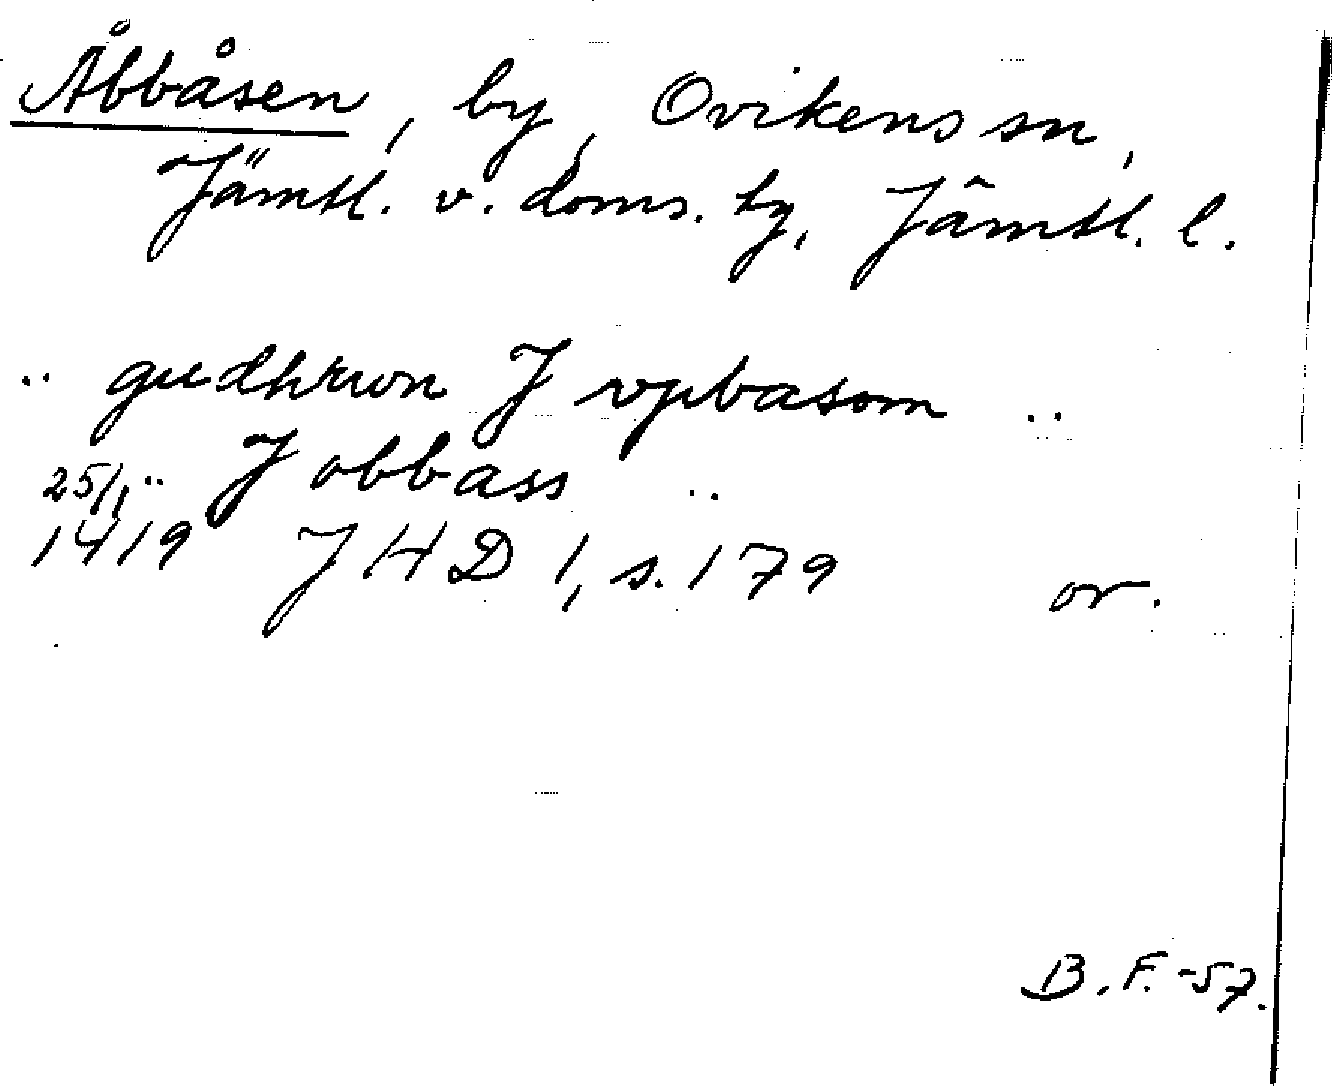 Åbbåsen, by, Ovikens sn,
Jämtl. v. doms. tg, Jämtl. l.
.. gudhrwn J vpbasom ..
25/1 .. J obbass ..
1419 JHD 1, s. 179 or.
B. F. -57.